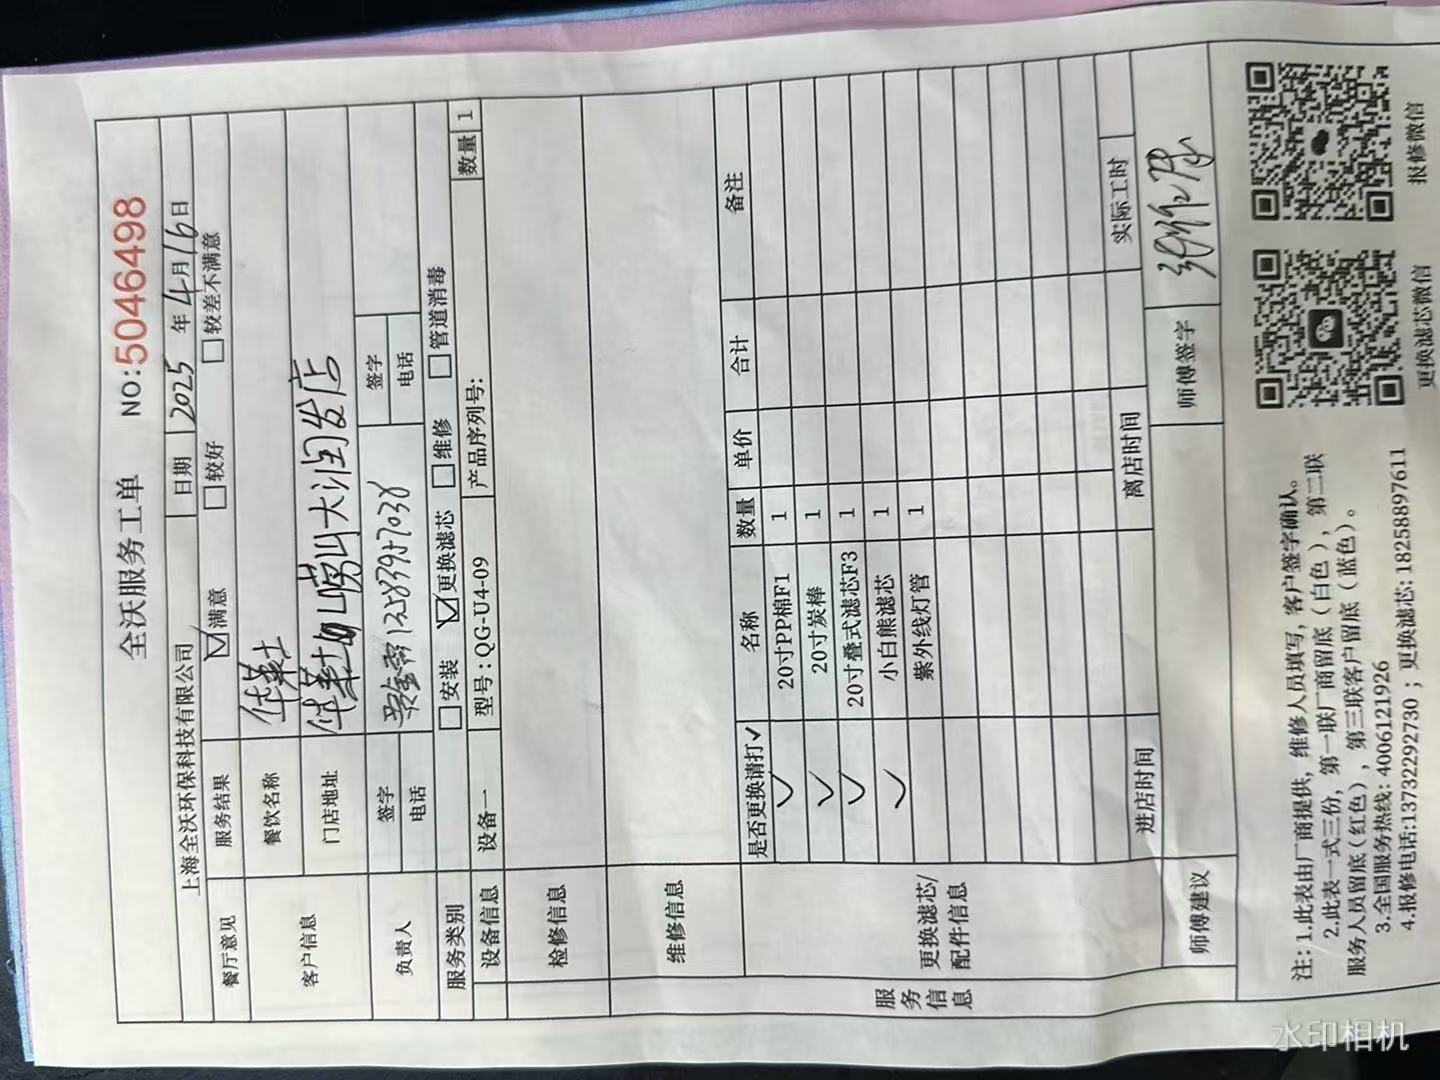 全沃服务工单 NO:5046498
上海全沃环保科技有限公司 日期 2025年4月16日
餐厅意见 服务结果 ☑满意 □较好 □较差不满意
客户信息 餐饮名称 华莱士
门店地址 华莱士 崂山大润发店
负责人 签字 签字
电话 电话
服务类别 □安装 ☑更换滤芯 □维修 □管道消毒
设备信息 设备一 型号:QG-U4-09 产品序列号: 数量 1
服务信息
检修信息
维修信息
更换滤芯/配件信息
是否更换请打✓ 名称 数量 单价 合计 备注
✓ 20寸PP棉F1 1
✓ 20寸炭棒 1
✓ 20寸叠式滤芯F3 1
✓ 小白熊滤芯 1
紫外线灯管 1
进店时间 离店时间 实际工时
师傅建议 师傅签字
注: 1.此表由厂商提供，维修人员填写，客户签字确认。
2.此表一式三份，第一联厂商留底（白色），第二联
服务人员留底（红色），第三联客户留底（蓝色）。
3.全国服务热线: 4006121926
4.报修电话:13732292730 ；更换滤芯: 18258897611
更换滤芯微信 报修微信
水印相机